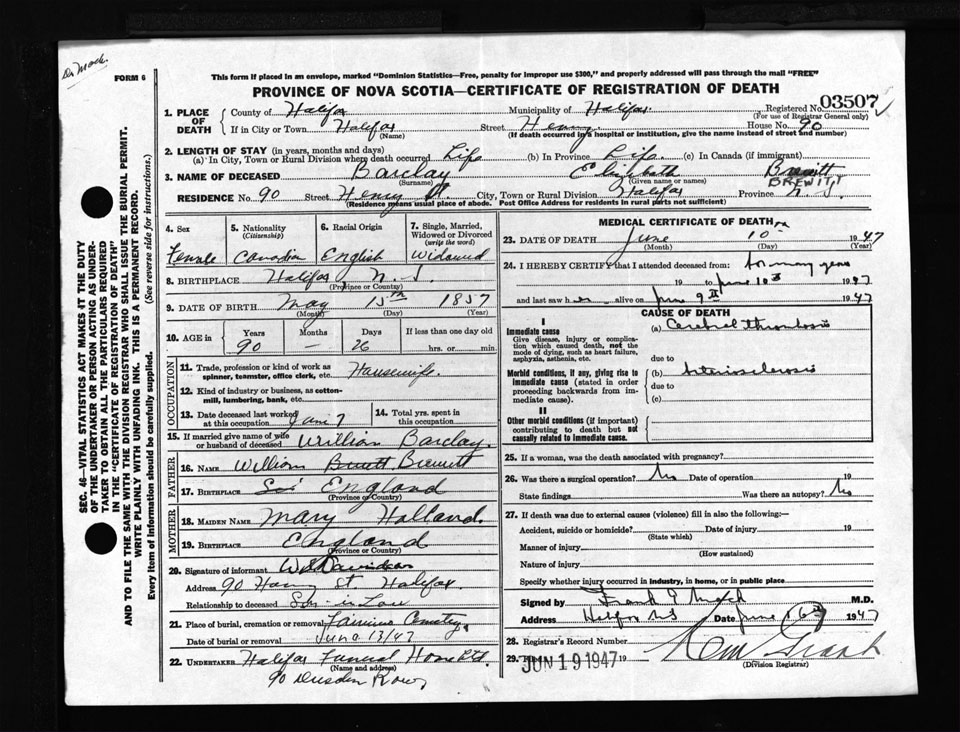 Dr Mack.
FORM 6
This form if placed in an envelope, marked "Dominion Statistics—Free, penalty for improper use $300," and properly addressed will pass through the mail "FREE"
PROVINCE OF NOVA SCOTIA—CERTIFICATE OF REGISTRATION OF DEATH
SEC. 46—VITAL STATISTICS ACT MAKES IT THE DUTY
OF THE UNDERTAKER OR PERSON ACTING AS UNDER-
TAKER TO OBTAIN ALL THE PARTICULARS REQUIRED
IN THE "CERTIFICATE OF REGISTRATION OF DEATH"
AND TO FILE THE SAME WITH THE DIVISION REGISTRAR WHO SHALL ISSUE THE BURIAL PERMIT.
WRITE PLAINLY WITH UNFADING INK. THIS IS A PERMANENT RECORD.
Every item of information should be carefully supplied. (See reverse side for instructions.)
1. PLACE OF DEATH County of Halifax Municipality of Halifax. Registered No. 03507
(For use of Registrar General only)
If in City or Town Halifax Street Henry House No. 90
(Name) (If death occurred in a hospital or institution, give the name instead of street and number)
2. LENGTH OF STAY (in years, months and days)
(a) In City, Town or Rural Division where death occurred Life (b) In Province Life. (c) In Canada (if immigrant)
3. NAME OF DECEASED Barclay Elizabeth Brewitt
BREWITT
(Surname) (Given name or names)
RESIDENCE No. 90 Street Henry St. City, Town or Rural Division Halifax Province N. S.
(Residence means usual place of abode. Post Office Address for residents in rural parts not sufficient)
4. Sex 5. Nationality (Citizenship) 6. Racial Origin 7. Single, Married, Widowed or Divorced (write the word)
Female Canadian English Widowed
8. BIRTHPLACE Halifax N. S
(Province or Country)
9. DATE OF BIRTH May 15th 1857
(Month) (Day) (Year)
10. AGE in Years Months Days If less than one day old
90 — 26 hrs. or min.
OCCUPATION
11. Trade, profession or kind of work as spinner, teamster, office clerk, etc. Housewife.
12. Kind of industry or business, as cotton-mill, lumbering, bank, etc.
13. Date deceased last worked at this occupation June 7 14. Total yrs. spent in this occupation
15. If married give name of wife or husband of deceased William Barclay.
FATHER
16. NAME William Brewitt
17. BIRTHPLACE England
(Province or Country)
MOTHER
18. MAIDEN NAME Mary Holland.
19. BIRTHPLACE England
(Province or Country)
20. Signature of informant Davidson
Address 90 Henry St. Halifax
Relationship to deceased Son-in-Law
21. Place of burial, cremation or removal Cemetery.
Date of burial or removal June 13/47
22. UNDERTAKER Halifax Funeral Home Ltd.
(Name and address)
90 Dresden Row
MEDICAL CERTIFICATE OF DEATH
23. DATE OF DEATH June 10th 1947
(Month) (Day) (Year)
24. I HEREBY CERTIFY that I attended deceased from: for many years
19 to June 10th 1947
and last saw her alive on June 9th 1947
CAUSE OF DEATH
I
Immediate cause (a) Cerebral thrombosis
Give disease, injury or complication which caused death, not the mode of dying, such as heart failure, asphyxia, asthenia, etc.
due to
Morbid conditions, if any, giving rise to immediate cause (stated in order proceeding backwards from immediate cause). (b) Arteriosclerosis
due to
(c)
II
Other morbid conditions (if important) contributing to death but not causally related to immediate cause.
25. If a woman, was the death associated with pregnancy?
26. Was there a surgical operation? No Date of operation 19
State findings Was there an autopsy? No
27. If death was due to external causes (violence) fill in also the following:—
Accident, suicide or homicide? Date of injury 19
(State which)
Manner of injury
(How sustained)
Nature of injury
Specify whether injury occurred in industry, in home, or in public place
Signed by Frank G Mack M.D.
Address Halifax NS Date June 1947
28. Registrar's Record Number
29. JUN 19 1947 19
(Division Registrar)